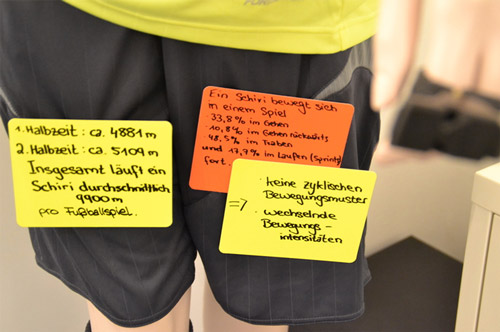 1. Halbzeit: ca. 4881 m
2. Halbzeit: ca. 5109 m
Insgesamt läuft ein
Schiri durchschnittlich
9900 m
pro Fußballspiel.
Ein Schiri bewegt sich
in einem Spiel
33,8% im Gehen
10,8% im Gehen rückwärts
48,5% im Traben
und 17,7% im Laufen (Sprint)
fort.
· keine zyklischen
Bewegungsmuster
=> · wechselnde
Bewegungs-
intensitäten